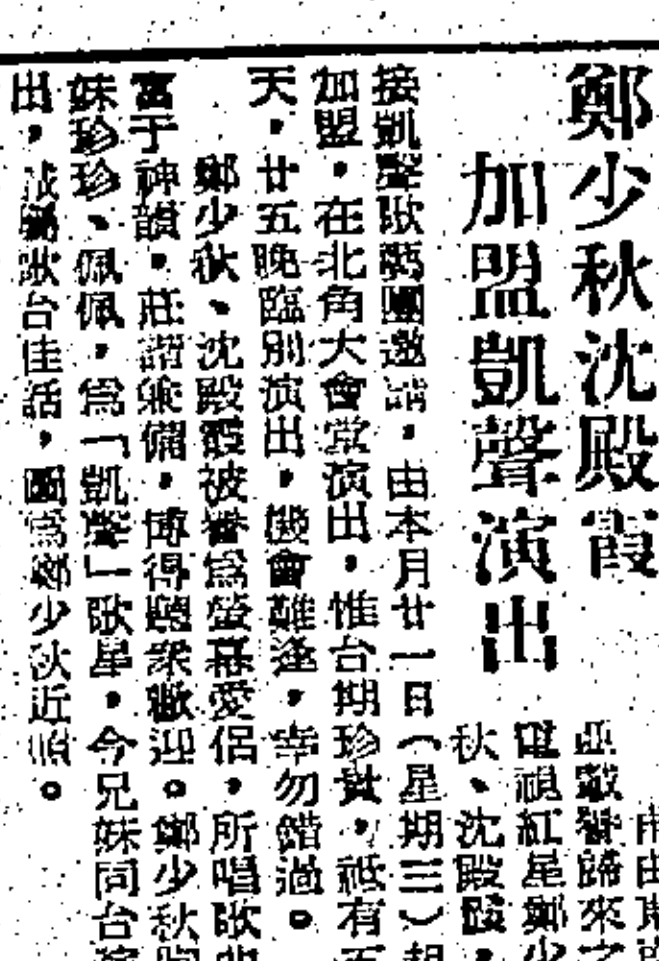 鄭少秋沈殿霞
加盟凱聲演出
由東南
亞載譽歸來之
電視紅星鄭少
秋、沈殿霞，
接凱聲歌劇團邀請，由本月廿一日（星期三）起
加盟，在北角大會堂演出，惟台期珍貴，祗有五
天，廿五晚臨別演出，機會難逢，幸勿錯過。
鄭少秋、沈殿霞被譽為螢幕愛侶，所唱歌曲
富于神韻，莊諧兼備，博得聽衆歡迎。鄭少秋胞
妹珍珍、佩佩，爲「凱聲」歌星，今兄妹同台演
出，成屬歌台佳話，圖爲鄭少秋近照。